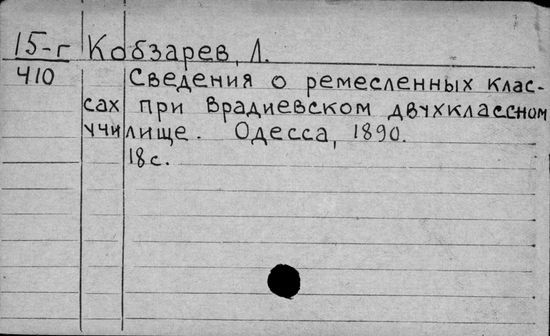 15-г Кобзарев, Л.
410 Сведения о ремесленных клас-
сах при Врадиевском двухклассном
училище. Одесса, 1890.
18 с.